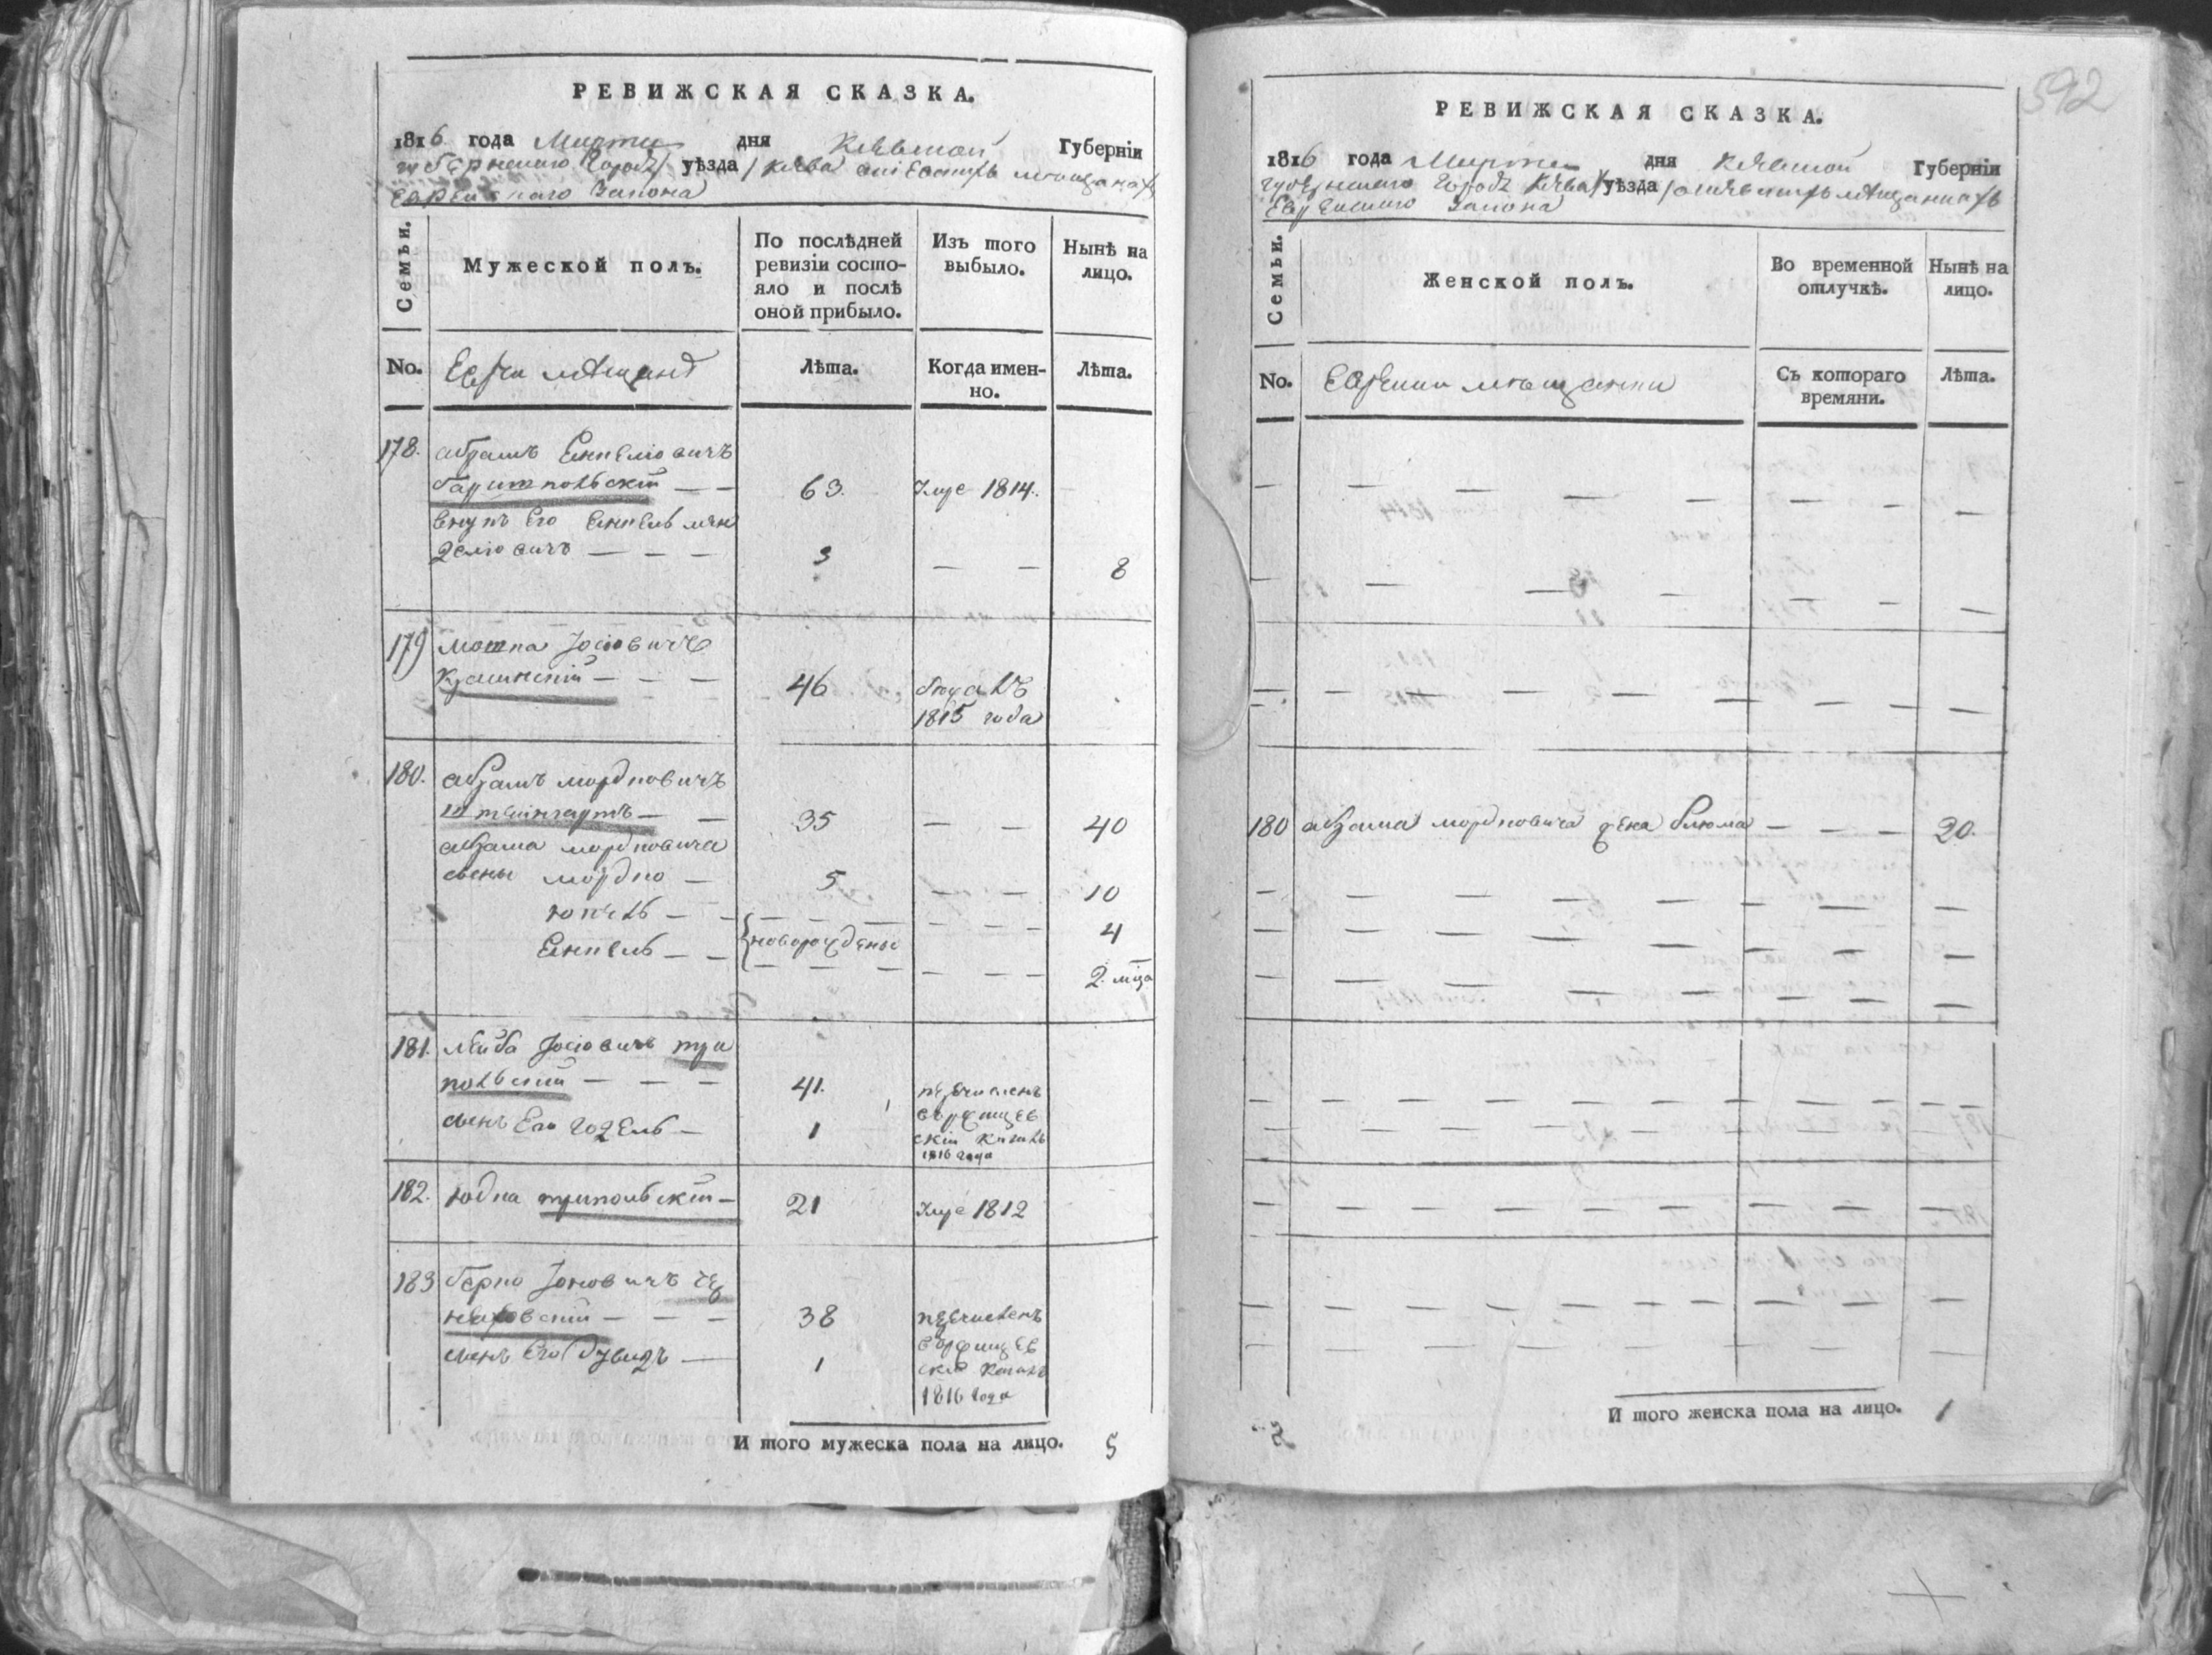 РЕВИЖСКАЯ СКАЗКА.
1816 года Марта дня Кіевской Губерніи
губернскаго города уѣзда Кіева мещанахъ
Еврейскаго Закона
Семьи.
Мужеской полъ.
По послѣдней ревизіи состояло и послѣ оной прибыло.
Изъ того выбыло.
Нынѣ на лицо.
No.
Евреи мѣщане
Лѣта.
Когда именно.
Лѣта.
178. Абрамъ Енкелювичъ
Баришпольскій — — 63. Умре 1814.
внукъ Его Енкель Мен
делювичъ — — — 3 — — 8
179 Мошка Іосіовичъ
— — — 46 бѣжалъ
1815 года
180. Абрамъ Мордковичъ
Штейнгартъ — — 35 — — 40
Абрама Мордковича
сыны Мордко — 5 — — 10
— — — — — — — — 4
Енкель — — новорожденые — — — 2. мца
181. Лейба Іосіовичъ Три
польскій — — — 41. перечисленъ
сынъ Его Гозель — 1 в Ржищев
скій Кагалъ
1816 года
182. Юдка Трипольскій — 21 Умре 1812
183 Берко Іоновичъ Чер
няховскій — — — 38 перечисленъ
в Ржищев
сынъ Его Дувидъ — 1 скій Кагалъ
1816 года
И того мужеска пола на лицо. 5
592
РЕВИЖСКАЯ СКАЗКА.
1816 года Марта дня Кіевской Губерніи
губернскаго города Кіева уѣзда мѣщанкахъ
Еврейскаго Закона
Семьи.
Женской полъ.
Во временной отлучкѣ.
Нынѣ на лицо.
No.
Еврейки мѣщанки
Съ котораго времяни.
Лѣта.
180 Абрама Мордковича жена Блюма — — — 20.
И того женска пола на лицо. 1